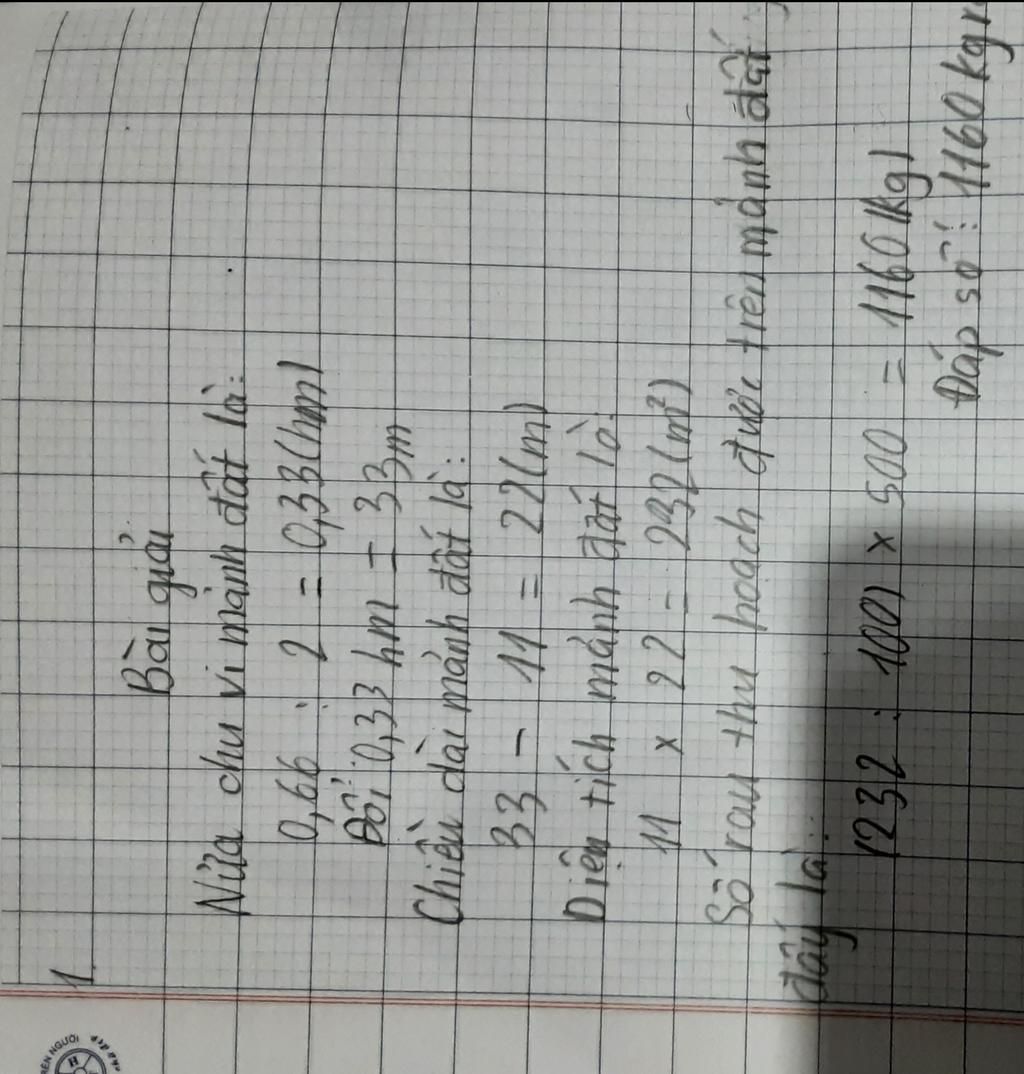 1
Bài giải
Nửa chu vi mảnh đất là:
0,66 : 2 = 0,33(hm)
Đổi 0,33 hm = 33m
Chiều dài mảnh đất là:
33 - 11 = 22(m)
Diện tích mảnh đất là:
11 x 22 = 232(m²)
Số rau thu hoạch được trên mảnh đất
đấy là:
(232 : 100) x 500 = 1160(kg)
Đáp số: 1160 kg
ÊN NGƯỜI